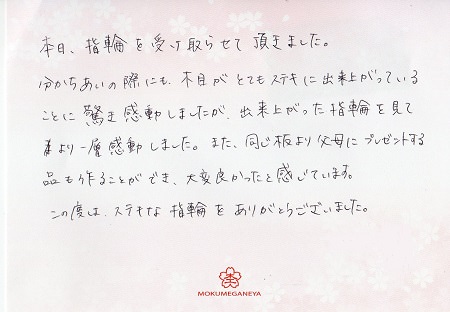 本日、指輪を受け取らせて頂きました。
分かちあいの際にも、木目がとてもステキに出来上がっている
ことに驚き感動しましたが、出来上がった指輪を見て
より一層感動しました。また、同じ板より父母にプレゼントする
品も作ることができ、大変良かったと感じています。
この度は、ステキな指輪をありがとうございました。
MOKUMEGANEYA